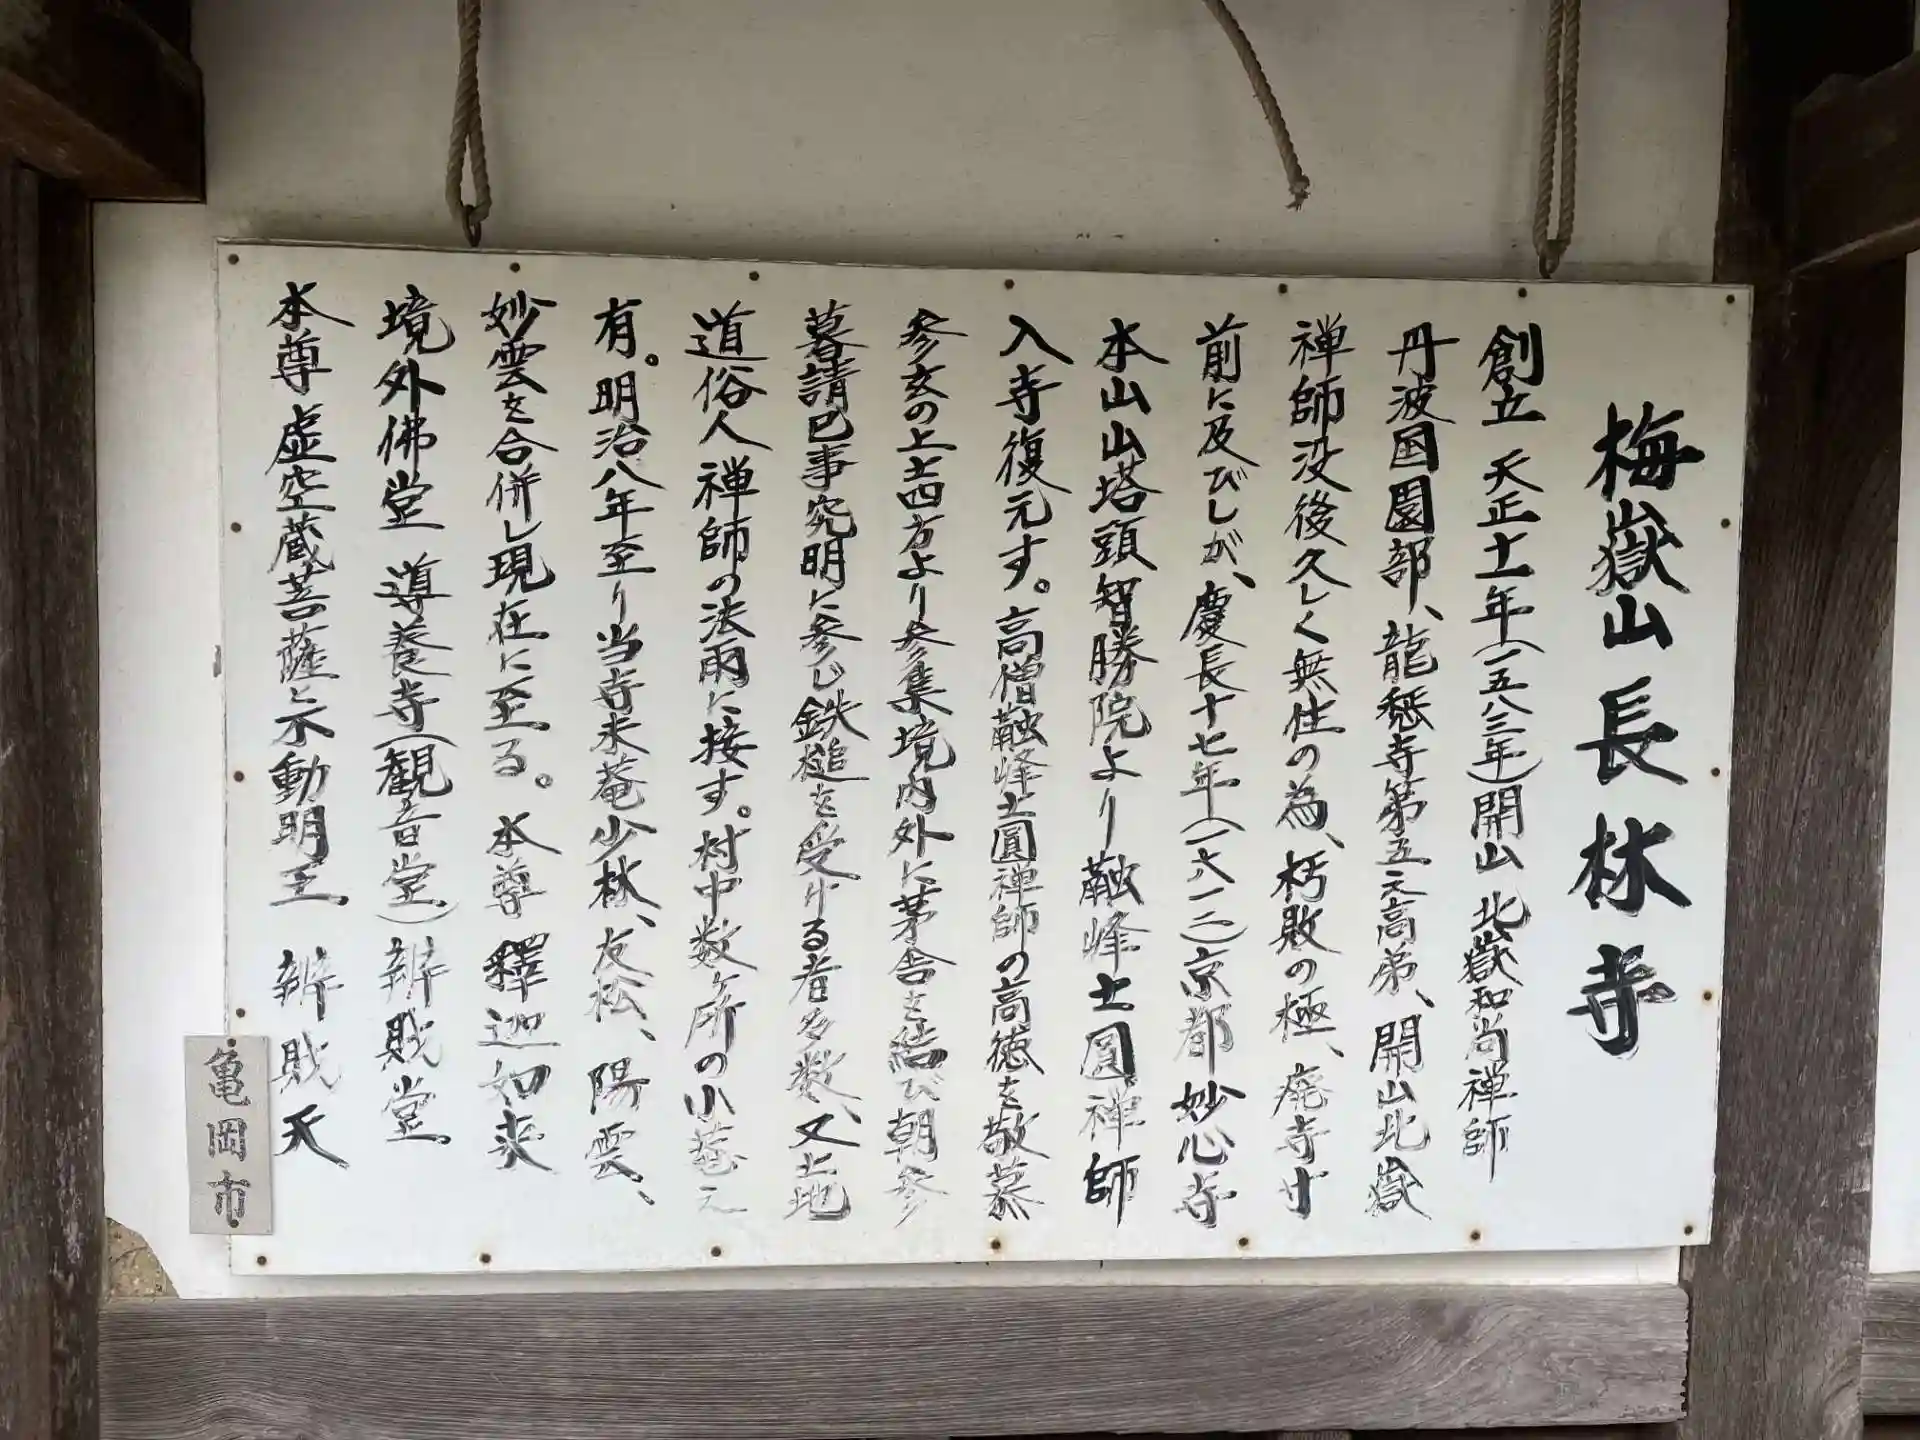 梅嶽山長林寺
創立 天正十一年（一五八三年）開山 北嶽和尚禅師
丹波国園部、龍穏寺第五之高弟、開山北嶽
禅師没後久しく無住の為、朽敗の極、廃寺寸
前に及びしが、慶長十七年（一六一二）京都妙心寺
本山山塔頭智勝院より 融峰士圓禅師
入寺復元す。高僧融峰士圓禅師の高徳を敬慕
参玄の上士四方より参集境内外に茅舎を結び朝参
暮請己事究明に参じ鉄槌を受ける者多数、又土地
道俗人禅師の法雨に接す。村中数ヶ所の小菴え
有。明治八年至り当寺末菴少林、友松、陽雲、
妙雲を合併し現在に至る。本尊 釋迦如来
境外佛堂 導養寺（観音堂）辨財堂
本尊 虚空蔵菩薩と不動明王 辨財天
亀岡市